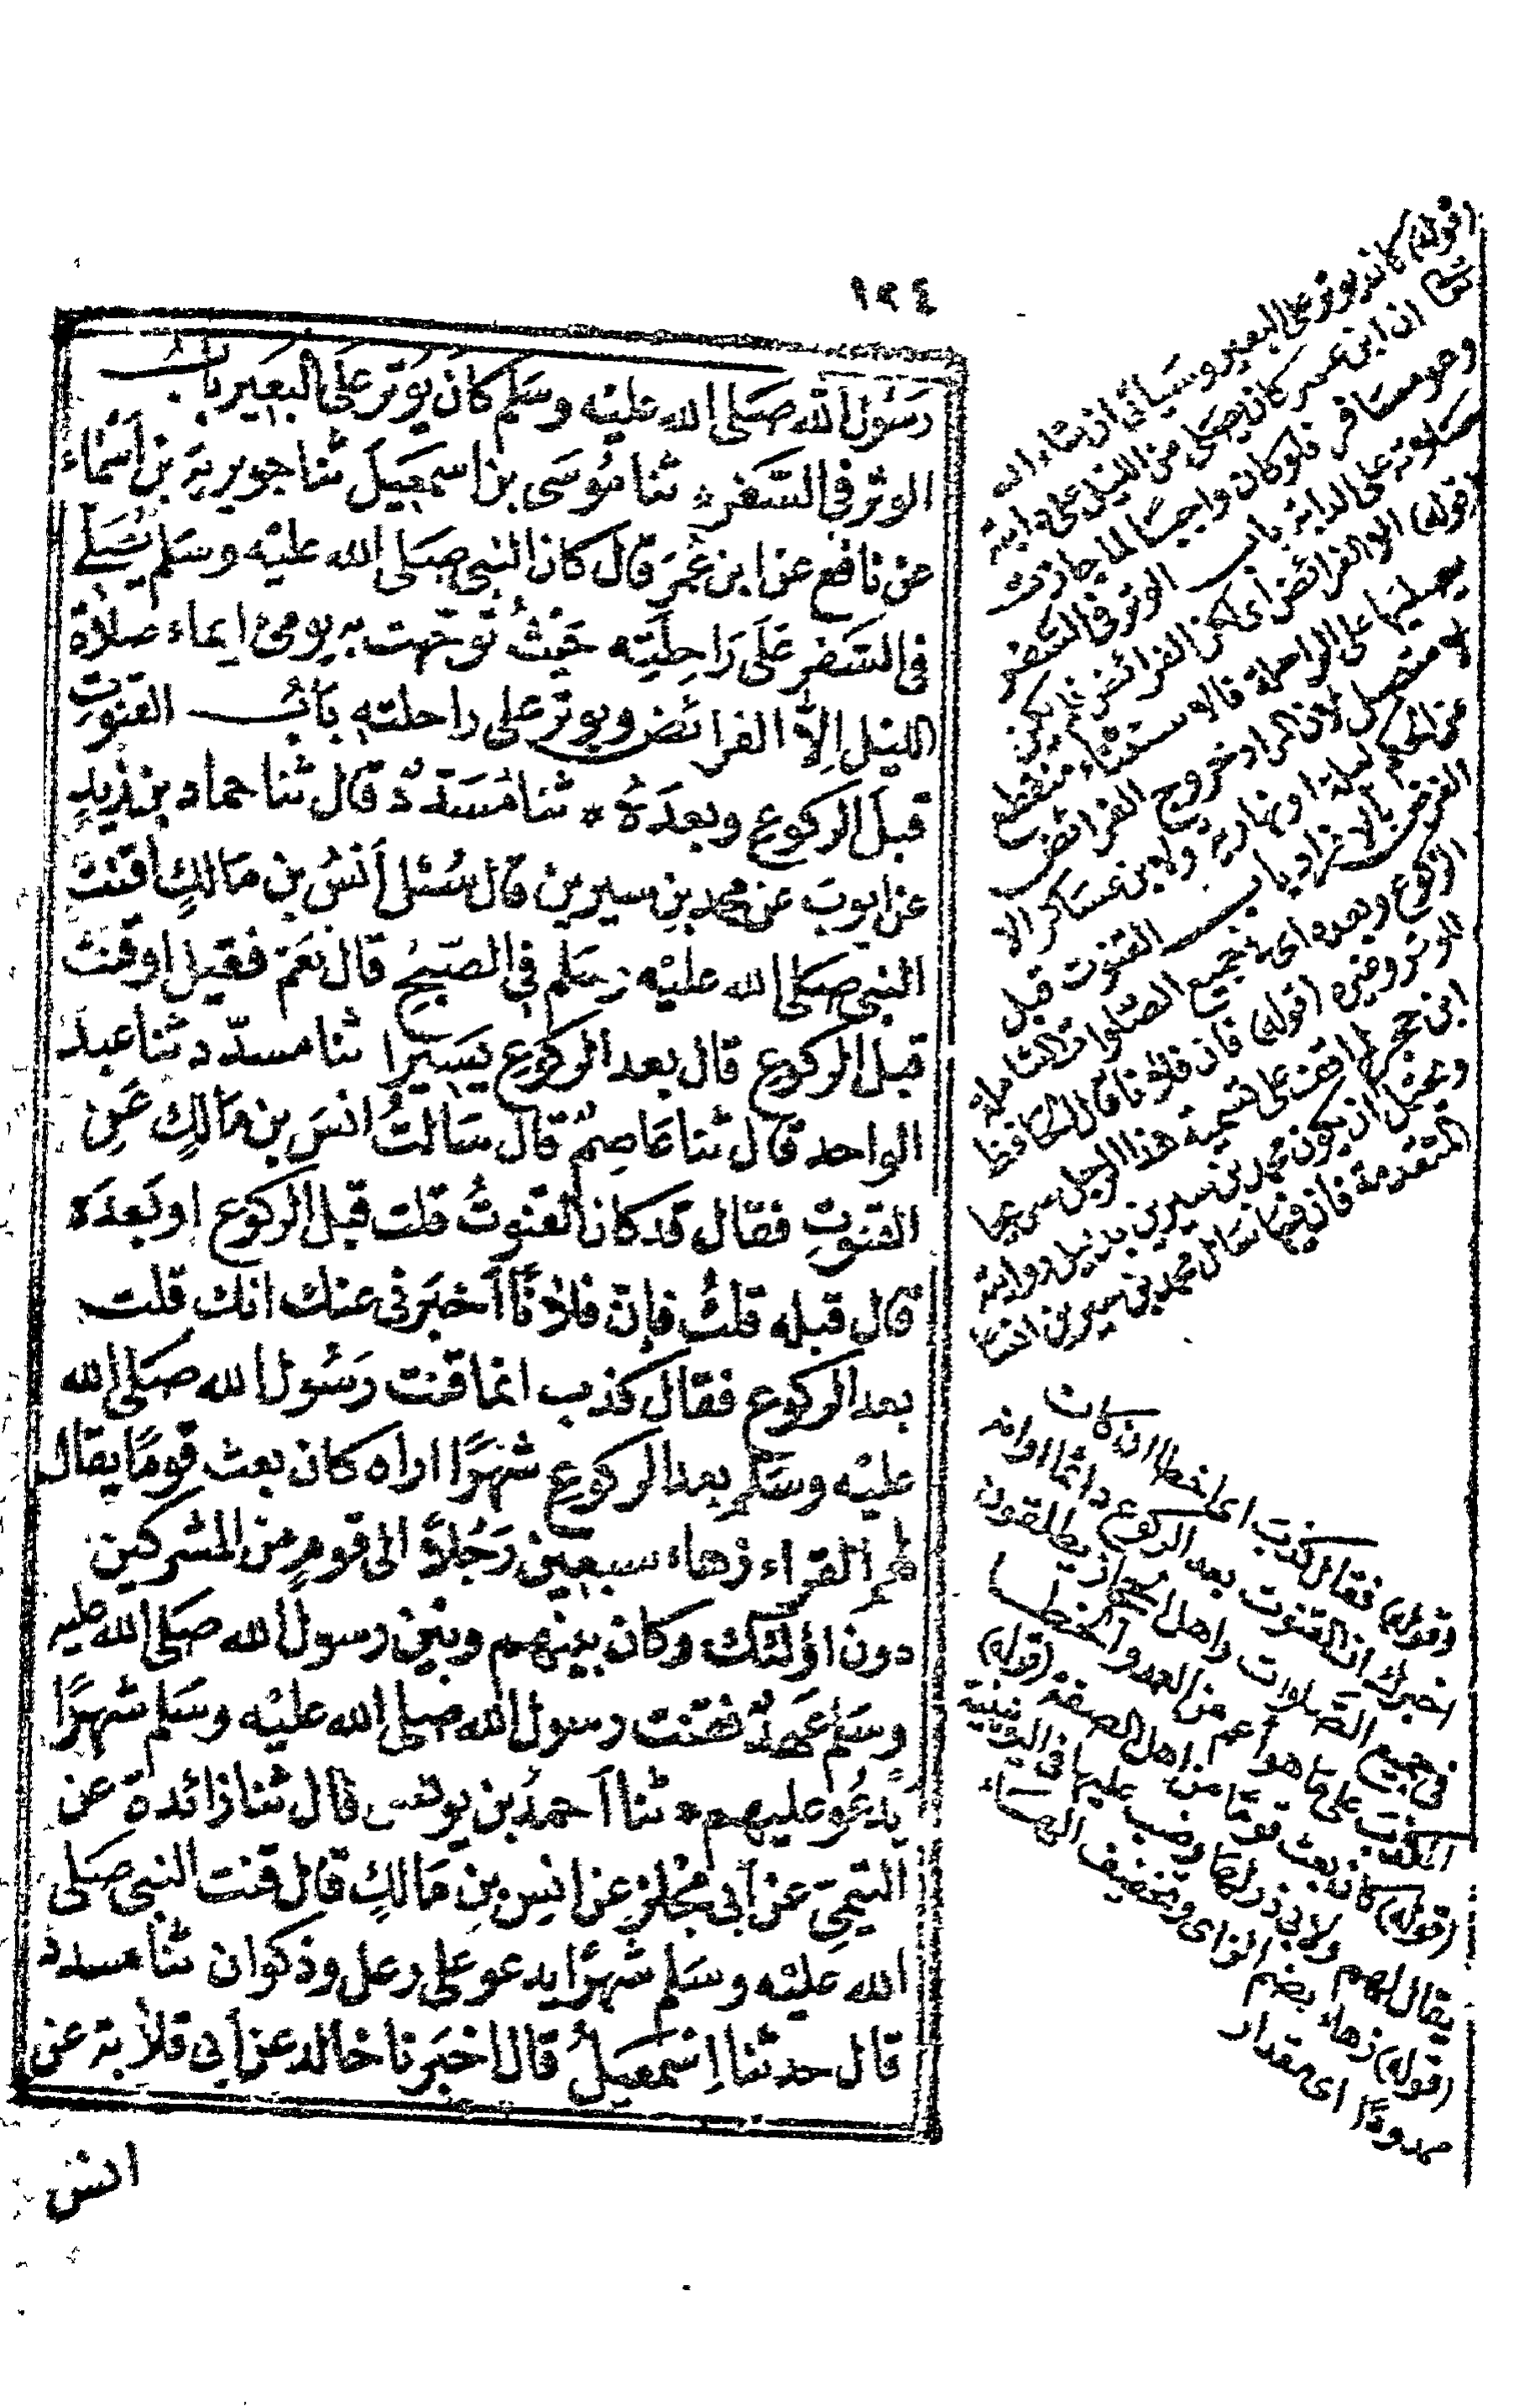 ١٩٤
رَسُولَ الله صَلى الله عليْه وسَلم كانَ يُوتر عَلى البعَير بابُ
الوتر في السَّفر * ثنا مُوسَى بن اسمعيلَ ثنا جويرية بن اَسْمَاء
عن نافع عن ابن عُمرَ قال كان النبي صَلى الله عليْه وسَلم يُصَلي
في السَّفر عَلى رَاحِلَتِه حَيثُ تَوجّهت به يومئ ايماء صلاة
الليْل اِلاَّ الفرائض ويوتر على راحلته بابُ القنوتِ
قبلَ الركوع وبعدَهُ * ثنا مُسَدّدٌ قال ثنا حماد بن زيدٍ
عن ايوبَ عن محمد بنِ سيرين قال سُئل اَنسُ بن مَالكٍ اَقنتَ
النبي صَلى الله عليْه وسَلم في الصّبحُ قال نَعَمْ فقيل اوقنتَ
قبل الركوع قال بعد الركوع يَسيرا ثنا مسدّد ثنا عبدُ
الواحد قال ثنا عَاصِمٌ قال سَالتُ انسَ بن مَالكٍ عَنِ
القنوتِ فقال قدكان القنوتُ قلت قبل الركوع او بَعدَه
قال قبله قلتُ فإنّ فلاناً اَخبَرني عنك انك قلت
بعد الركوع فقال كذب انما قنت رَسُول الله صَلى الله
عليْه وسَلم بعد الركوع شهرًا اراه كان بعث قومًا يقال
لهم القراء زهاء سبعين رَجُلاً الى قومٍ من المشركين
دون اؤلئك وكان بينهم وبَين رسول الله صَلى الله عليه
وسَلم عَهدٌ فقنت رسول الله صلى الله عليْه وسَلم شهرًا
يَدعُو عليهم * ثنا اَحمدُ بن يونس قال ثنا زائدة عن
التيمّي عن اَبي مجْلزٍ عن انسِ بنِ مَالكٍ قال قنت النبي صَلى
الله عليْه وسَلم شهرًا يدعو على رعل وذكوان ثنا مسدد
قال حدثنا اِسْمعيلُ قال اخبَرنا خالد عن اَبي قلابة عن
انس
(قوله) كان يوتر على البعير وسيأتى ان شاء الله
ان ابن عمر كان يصلى من الليل على دابته
وهو مسافر فلو كان واجبًا لما جازت
صلوته على الدابة باب الوتر في السفر
(قوله) الا الفرائض اى لكن الفرائض فلم يكن
يصليها على الراحلة فالاستثناء منقطع
لا متصل لان المراد خروج الفرائض
ولابن عساكر الا
الفرض بالافراد باب القنوت قبل
الركوع وبعده اى في جميع الصلوات الشاملة
للوتر وغيره (قوله) فان فلانا قال الحافظ
ابن حجر لم اقف على تسمية هذا الرجل صريحا
ويحتمل ان يكون محمد بن سيرين بدليل روايته
المتقدمة فان فيها سأل محمد بن سيرين انسا
(وقوله) فقال كذب اى اخطا ان كان
اخبرك ان القنوت بعد الركوع دائما او انه
في جميع الصلوات واهل الحجاز يطلقون
الكذب على ما هو اعم من العمد والخطا
(قوله) كان بعث قومًا من اهل الصفة (قوله)
يقال لهم ولابي ذر لها وضبب عليها في اليونينية
(قوله) زهاء بضم الزاى وتخفيف الهاء
ممدودًا اى مقدار